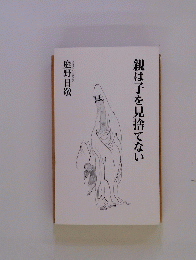 親は子を見捨てない
庭野日敬